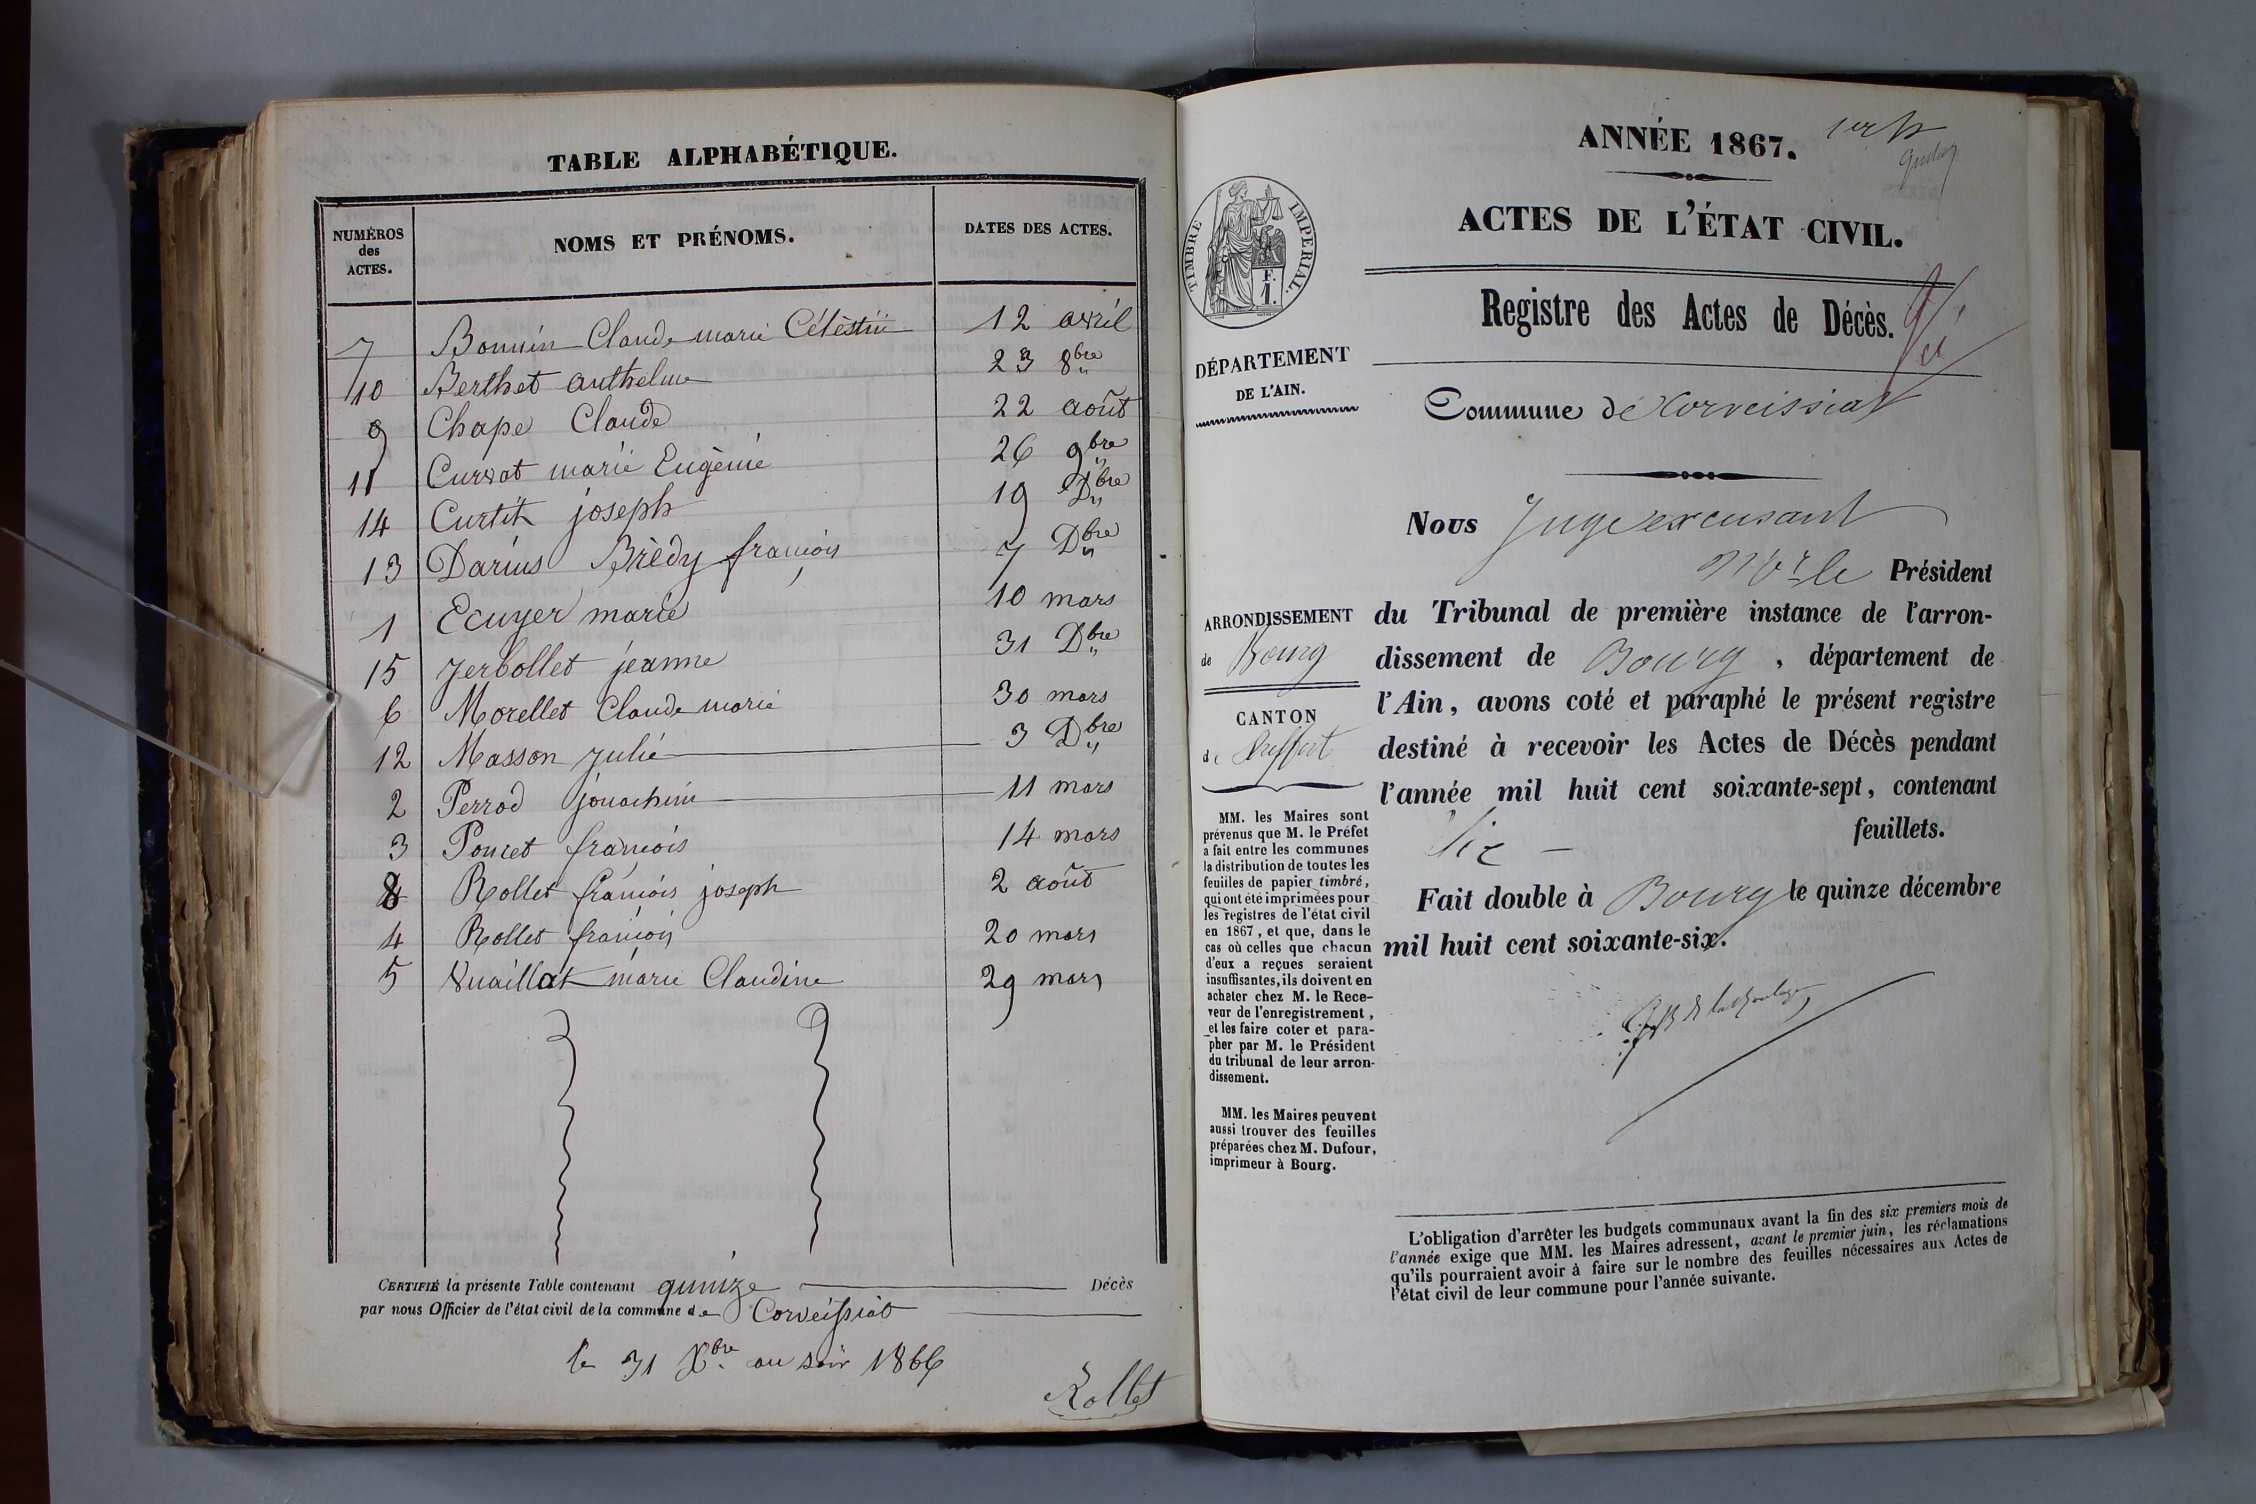 TABLE ALPHABÉTIQUE.
NUMÉROS des ACTES. NOMS ET PRÉNOMS. DATES DES ACTES.
7 Bonnin Claude marie Célèstin 12 avril
10 Berthet anthelme 23 8bre
9 Chape Claude 22 août
11 Curvat marie Eugènie 26 9bre
14 Curtit joseph 19 Dbre
13 Darius Brédy françois 7 Dbre
1 Ecuyer marie 10 mars
15 jerbollet jeanne 31 Dbre
6 Morellet Claude marie 30 mars
12 Masson julie 3 Dbre
2 Perrod jouachim 11 mars
3 Poncet françois 14 mars
8 Rollet françois joseph 2 août
4 Rollet françois 20 mars
5 Vuaillat marie Claudine 29 mars
CERTIFIÉ la présente Table contenant quinze Décès
par nous Officier de l'état civil de la commune de Corveissiat
le 31 Xbre au soir 1866
Rollet
ANNÉE 1867.
ACTES DE L'ÉTAT CIVIL.
TIMBRE IMPERIAL.
F.
1.
Registre des Actes de Décès.
DÉPARTEMENT
DE L'AIN.
Commune de Corveissiat
Nous Juge excusant
Mr le Président
ARRONDISSEMENT
de Bourg
CANTON
de Treffort
du Tribunal de première instance de l'arron-
dissement de Bourg, département de
l'Ain, avons coté et paraphé le présent registre
destiné à recevoir les Actes de Décès pendant
l'année mil huit cent soixante-sept, contenant
Six feuillets.
Fait double à Bourg le quinze décembre
mil huit cent soixante-six.
MM. les Maires sont
prévenus que M. le Préfet
a fait entre les communes
la distribution de toutes les
feuilles de papier timbré,
qui ont été imprimées pour
les registres de l'état civil
en 1867, et que, dans le
cas où celles que chacun
d'eux a reçues seraient
insuffisantes, ils doivent en
acheter chez M. le Rece-
veur de l'enregistrement,
et les faire coter et para-
pher par M. le Président
du tribunal de leur arron-
dissement.
MM. les Maires peuvent
aussi trouver des feuilles
préparées chez M. Dufour,
imprimeur à Bourg.
L'obligation d'arrêter les budgets communaux avant la fin des six premiers mois de
l'année exige que MM. les Maires adressent, avant le premier juin, les réclamations
qu'ils pourraient avoir à faire sur le nombre des feuilles nécessaires aux Actes de
l'état civil de leur commune pour l'année suivante.